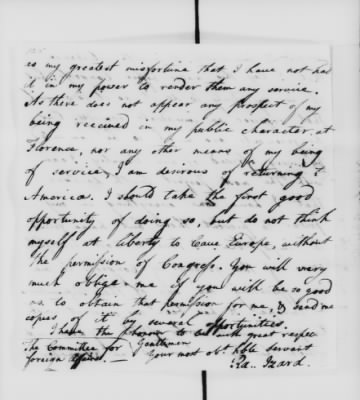 as my greatest misfortune that I have not had
it in my power to render them any service.
As there does not appear any prospect of my
being received in my public character at
Florence, nor any other means of my being
of service, I am desirous of returning to
America. I should take the first good
opportunity of doing so, but do not think
myself at liberty to leave Europe, without
the permission of Congress. You will very
much oblige me if you will be so good
as to obtain that permission for me, & send me
copies of it by several opportunities.
I have the honour to be with great respect
Gentlemen
The Committee for
Your most obt hble servant
foreign affairs.
Ra. Izard.